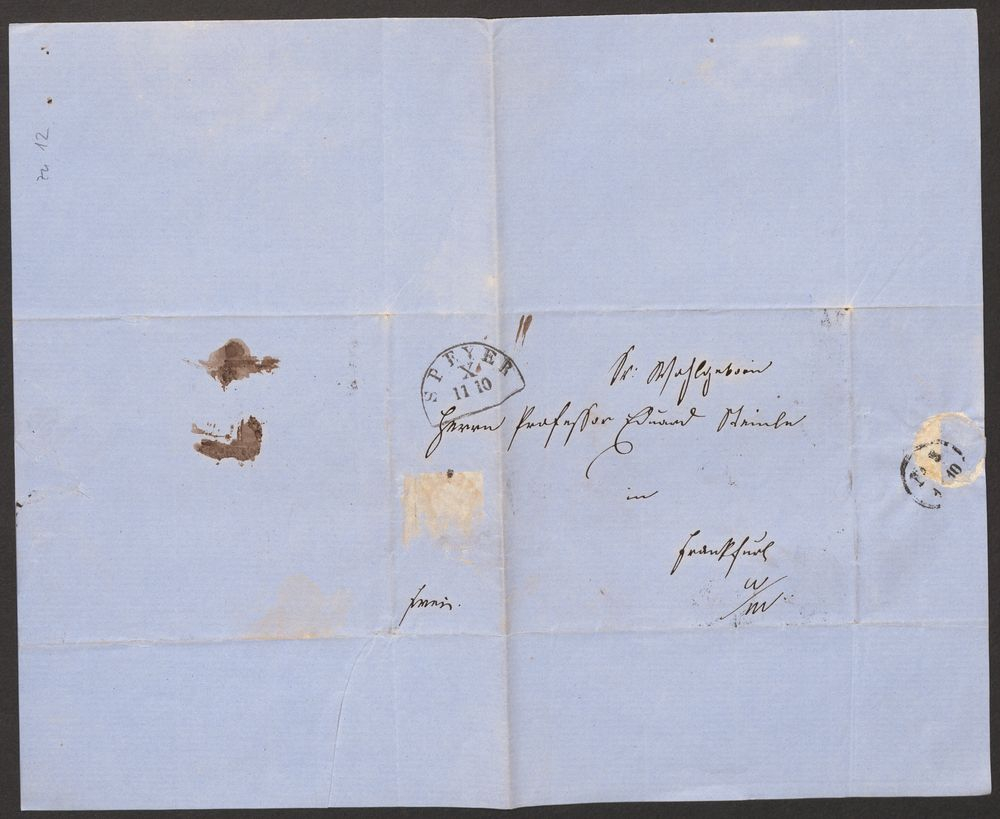 zu 12
SPEYER
X.
11 10
Sr. Wohlgeborn
Herrn Professor Eduard Steinle
in
Frankfurt
a/m
frei.
10